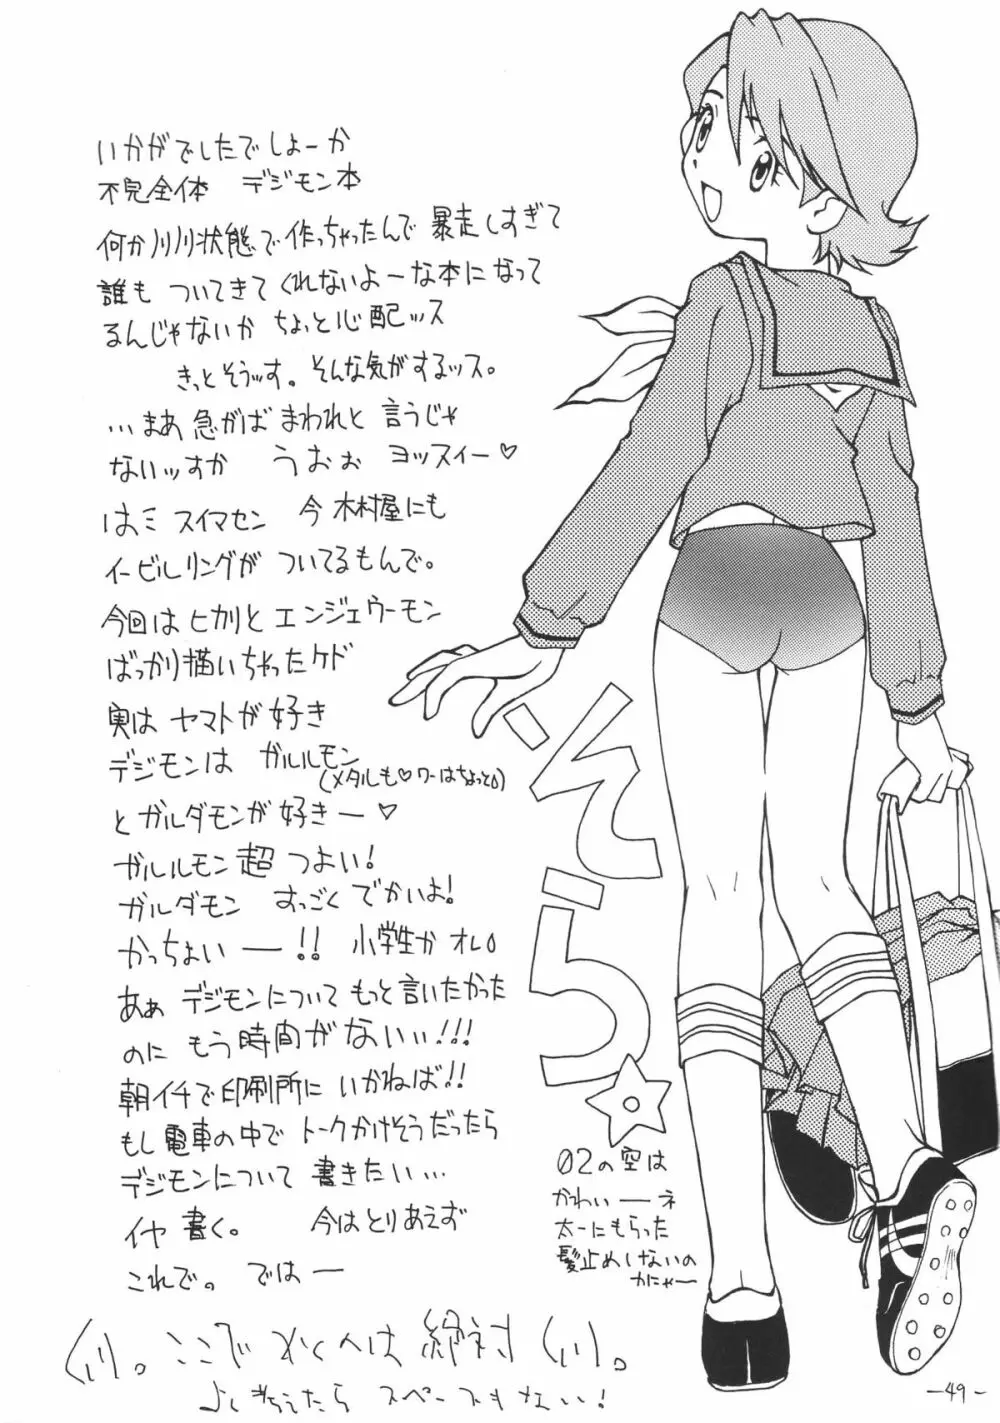 いかがでしたでしょーか
不完全体 デジモン本
何かノリノリ状態で作っちゃったんで 暴走しすぎて
誰も ついてきてくれないよーな本になって
るんじゃないか ちょっと心配ッス
きっとそうッす。そんな気がするッス。
…まあ 急がば まわれと 言うじゃ
ないッすか うおぉ ヨッスィー♡
はミ スイマセン 今 木村屋にも
イービルリングが ついてるもんで。
今回は ヒカリと エンジェウーモン
ばっかり描いちゃったケド
実は ヤマトが好き
デジモンは ガルルモン
(メタルも♡ワーはちょっと)
とガルダモンが好きー♡
ガルルモン 超 つよい!
ガルダモン すっごく でかいよ!
かっちょいー!! 小学生か オレ
あぁ デジモンについて もっと言いたかった
のに もう時間がないぃ!!!
朝イチで印刷所に いかねば!!
もし電車の中で トークかけそうだったら
デジモンについて 書きたい…
イヤ 書く。 今はとりあえず
これで。 ではー
そら
02の空は
かわいーネ
太一にもらった
髪止めしないの
かにゃー
ここで
は絶対
たら スペースもない!
-49-